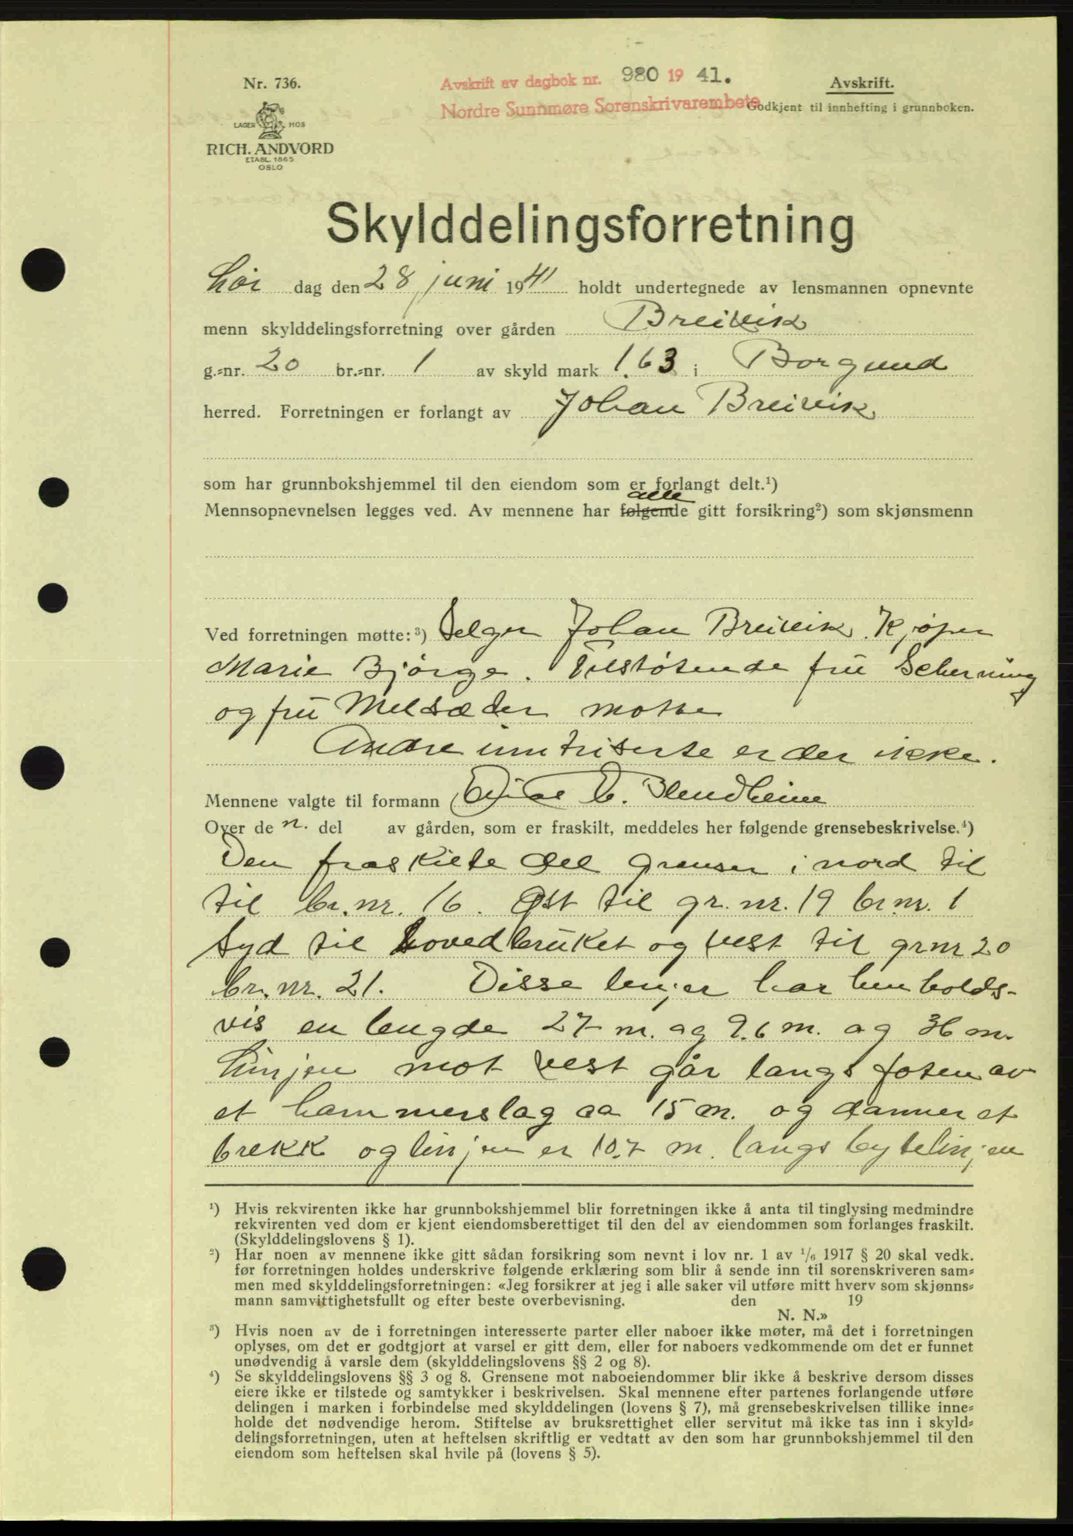 Nr. 736.
LAGER HOS
RICH. ANDVORD
ETABL. 1865
OSLO
Avskrift av dagbok nr. 980 1941.
Nordre Sunnmøre Sorenskrivarembete
Avskrift.
Godkjent til innhefting i grunnboken.
Skylddelingsforretning
Lør dag den 28 juni 1941 holdt undertegnede av lensmannen opnevnte
menn skylddelingsforretning over gården Breivik
g.-nr. 20 br.-nr. 1 av skyld mark 1.63 i Borgund
herred. Forretningen er forlangt av Johan Breivik
som har grunnbokshjemmel til den eiendom som er forlangt delt.¹)
alle
Mennsopnevnelsen legges ved. Av mennene har følgende gitt forsikring²) som skjønsmenn
Ved forretningen møtte:³) Selger Johan Breivik. Kjøper
Marie Bjørge. Tilstøtende fru Scherning
og fru Melsæder møtte
Andre inntriserte er der ikke.
Mennene valgte til formann E. Flendheim
Over de n. del av gården, som er fraskilt, meddeles her følgende grensebeskrivelse.⁴)
Den fraskilte del grenser i nord til
til br. nr. 16. Øst til gr. nr. 19 br. nr. 1
Syd til hovedbruket og vest til gr nr 20
br. nr. 21. Disse linjer har henholds-
vis en lengde 27 m. og 9.6 m. og 36 m.
Linjen mot vest går langs foten av
et hammerslag ca 15 m. og danner et
brekk og linjen er 10.7 m. langs bytelinjen
¹) Hvis rekvirenten ikke har grunnbokshjemmel blir forretningen ikke å anta til tinglysing medmindre
rekvirenten ved dom er kjent eiendomsberettiget til den del av eiendommen som forlanges fraskilt.
(Skylddelingslovens § 1).
²) Har noen av mennene ikke gitt sådan forsikring som nevnt i lov nr. 1 av ¹/₆ 1917 § 20 skal vedk.
før forretningen holdes underskrive følgende erklæring som blir å sende inn til sorenskriveren sam-
men med skylddelingsforretningen: «Jeg forsikrer at jeg i alle saker vil utføre mitt hverv som skjønns-
mann samvittighetsfullt og efter beste overbevisning. den 19
N. N.»
³) Hvis noen av de i forretningen interesserte parter eller naboer ikke møter, må det i forretningen
oplyses, om det er godtgjort at varsel er gitt dem, eller for naboers vedkommende om det er funnet
unødvendig å varsle dem (skylddelingslovens §§ 2 og 8).
⁴) Se skylddelingslovens §§ 3 og 8. Grensene mot naboeiendommer blir ikke å beskrive dersom disses
eiere ikke er tilstede og samtykker i beskrivelsen. Skal mennene efter partenes forlangende utføre
delingen i marken i forbindelse med skylddelingen (lovens § 7), må grensebeskrivelsen tillike inne-
holde det nødvendige herom. Stiftelse av bruksrettighet eller servitut må ikke tas inn i skyld-
delingsforretningen, uten at heftelsen skriftlig er vedtatt av den som har grunnbokshjemmel til den
eiendom som heftelsen skal hvile på (lovens § 5).